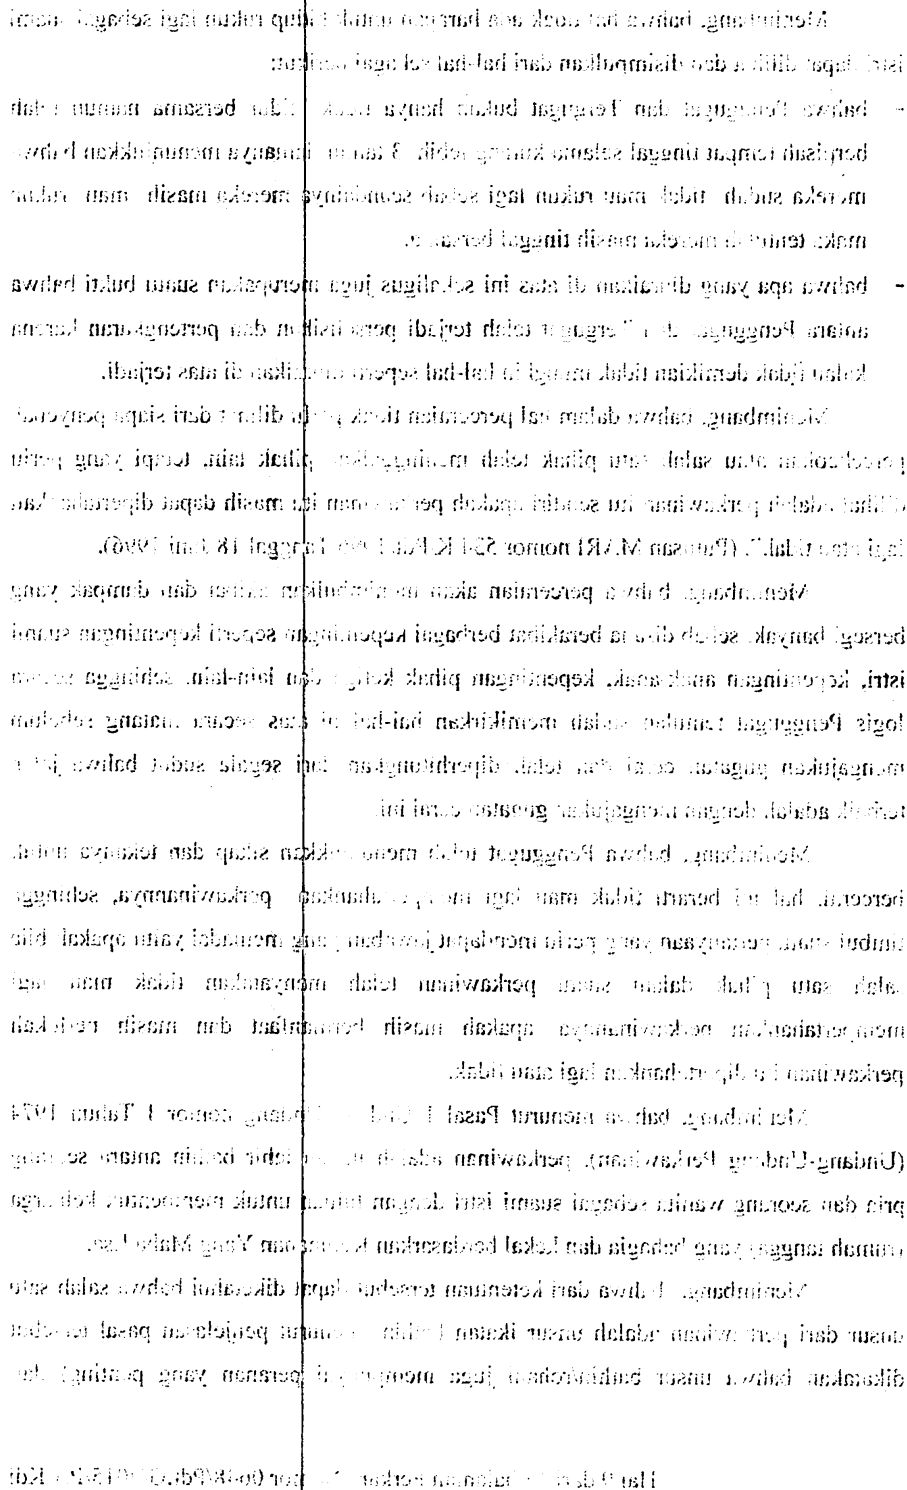 Menimbang, bahwa hal tidak ada harapan untuk hidup rukun lagi sebagai suami
istri dapat dilihat dan disimpulkan dari hal-hal sebagai berikut:
- bahwa Penggugat dan Tergugat bukan hanya tidak tidur bersama namun telah
berpisah tempat tinggal selama kurang lebih 3 tahun menunjukkan bahwa
mereka sudah tidak mau rukun lagi sebab seandainya mereka masih mau rukun
maka tentulah mereka masih tinggal bersama.
- bahwa apa yang diuraikan di atas ini sekaligus juga merupakan suatu bukti bahwa
antara Penggugat dan Tergugat telah terjadi perselisihan dan pertengkaran karena
kalau tidak demikian tidak mungkin hal-hal seperti diuraikan di atas terjadi.
Menimbang, bahwa dalam hal perceraian tidak perlu dilihat dari siapa penyebab
percekcokan atau salah satu pihak telah meninggalkan pihak lain, tetapi yang perlu
dilihat adalah perkawinan itu sendiri apakah perkawinan itu masih dapat dipertahankan
lagi atau tidak." (Putusan MARI nomor 534 K/Pdt/1996 Tanggal 18 Juni 1996).
Menimbang, bahwa perceraian akan menimbulkan akibat dan dampak yang
bersegi banyak, sebab dimana berakibat berbagai kepentingan seperti kepentingan suami
istri, kepentingan anak-anak, kepentingan pihak ketiga dan lain-lain, sehingga secara
logis Penggugat tentulah sudah memikirkan hal-hal di atas secara matang sebelum
mengajukan gugatan cerai dan telah diperhitungkan dari segala sudut bahwa jalan
terbaik adalah dengan mengajukan gugatan cerai ini.
Menimbang, bahwa Penggugat telah menunjukkan sikap dan tekadnya untuk
bercerai, hal ini berarti tidak mau lagi mempertahankan perkawinannya, sehingga
timbul suatu pertanyaan yang perlu mendapat jawaban yang memadai yaitu apakah bila
salah satu pihak dalam suatu perkawinan telah menyatakan tidak mau lagi
mempertahankan perkawinannya apakah masih bermanfaat dan masih perlukah
perkawinan itu dipertahankan lagi atau tidak.
Menimbang, bahwa menurut Pasal 1 Undang-Undang nomor 1 Tahun 1974
(Undang-Undang Perkawinan), perkawinan adalah ikatan lahir bathin antara seorang
pria dan seorang wanita sebagai suami istri dengan tujuan untuk membentuk keluarga
(rumah tangga) yang bahagia dan kekal berdasarkan Ketuhanan Yang Maha Esa.
Menimbang, bahwa dari ketentuan tersebut dapat diketahui bahwa salah satu
unsur dari perkawinan adalah unsur ikatan bathin, menurut penjelasan pasal tersebut
dikatakan bahwa unsur bathin/rohani juga mempunyai peranan yang penting) dan
Hal 9 dari halaman Perkara Nomor 0648/Pdt.G/2015/PA Kdi